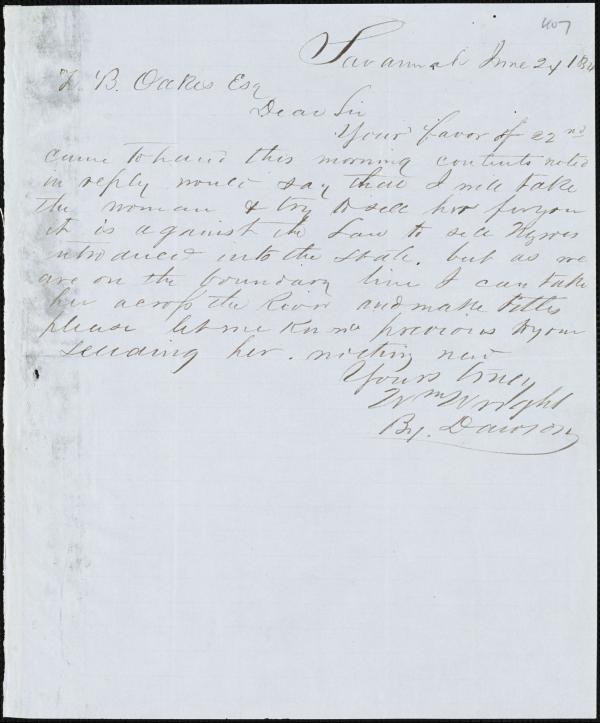 407
Savannah June 24 185
Z. B. Oakes Esq
Dear Sir
Your favor of 22nd
came to hand this morning contents noted
in reply would say that I will take
the woman & try to sell her for you
it is against the Law to sell Negroes
introduced into the State. but as we
are on the boundary line I can take
her across the River and make titles
please let me know previous to your
sending her. nothing new
Yours truly
Wm Wright
By. Dawson